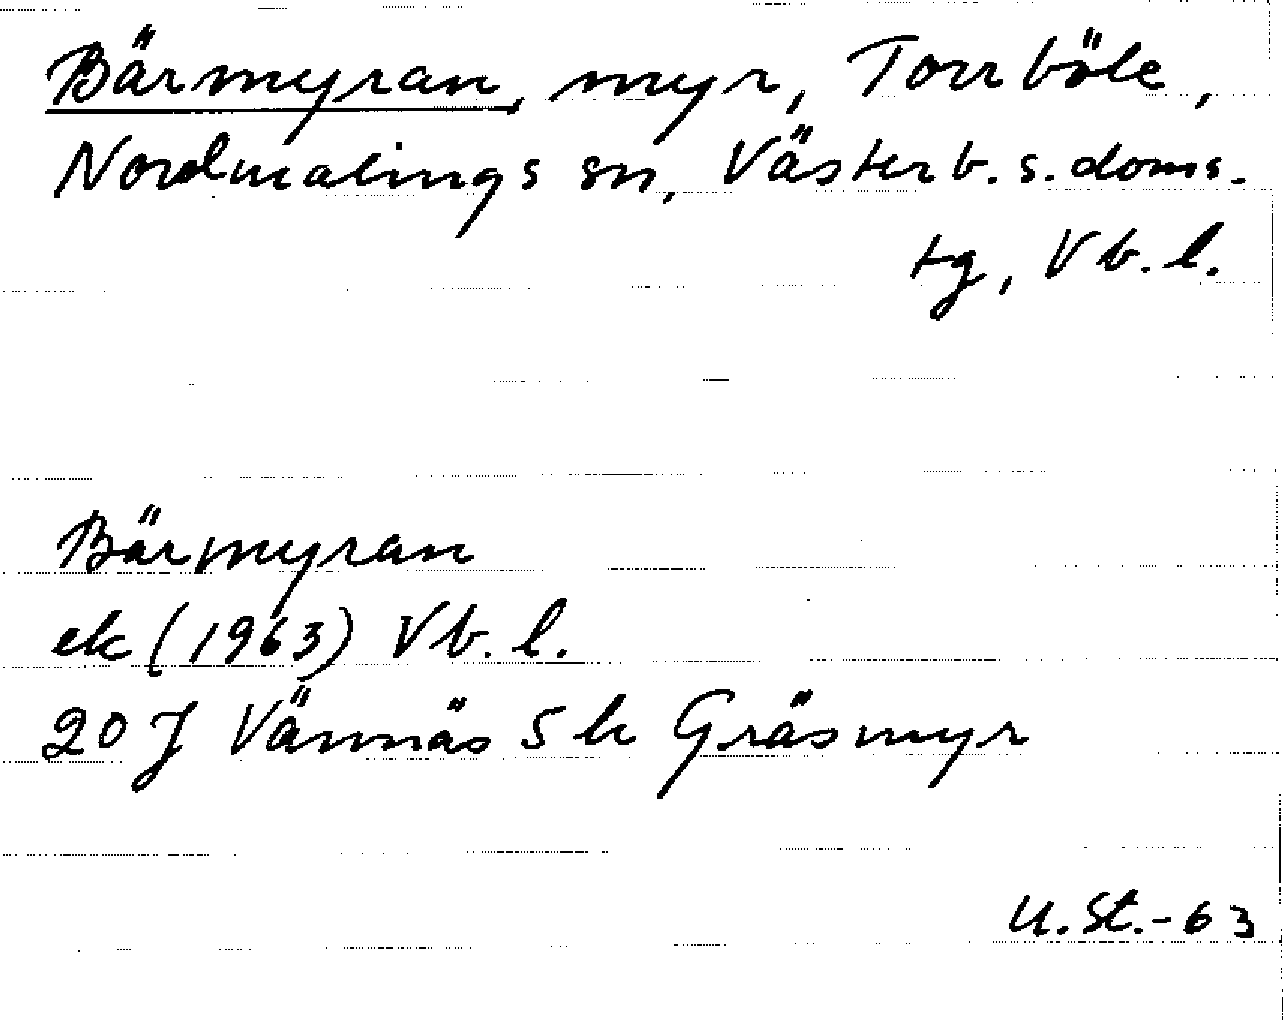 Bärmyran, myr, Torrböle,
Nordmalings sn, Västerb. s. doms.
tg, Vb. l.
Bärmyran
ek (1963) Vb. l.
20 J Vännäs 5 h Gräsmyr
U. St. - 63